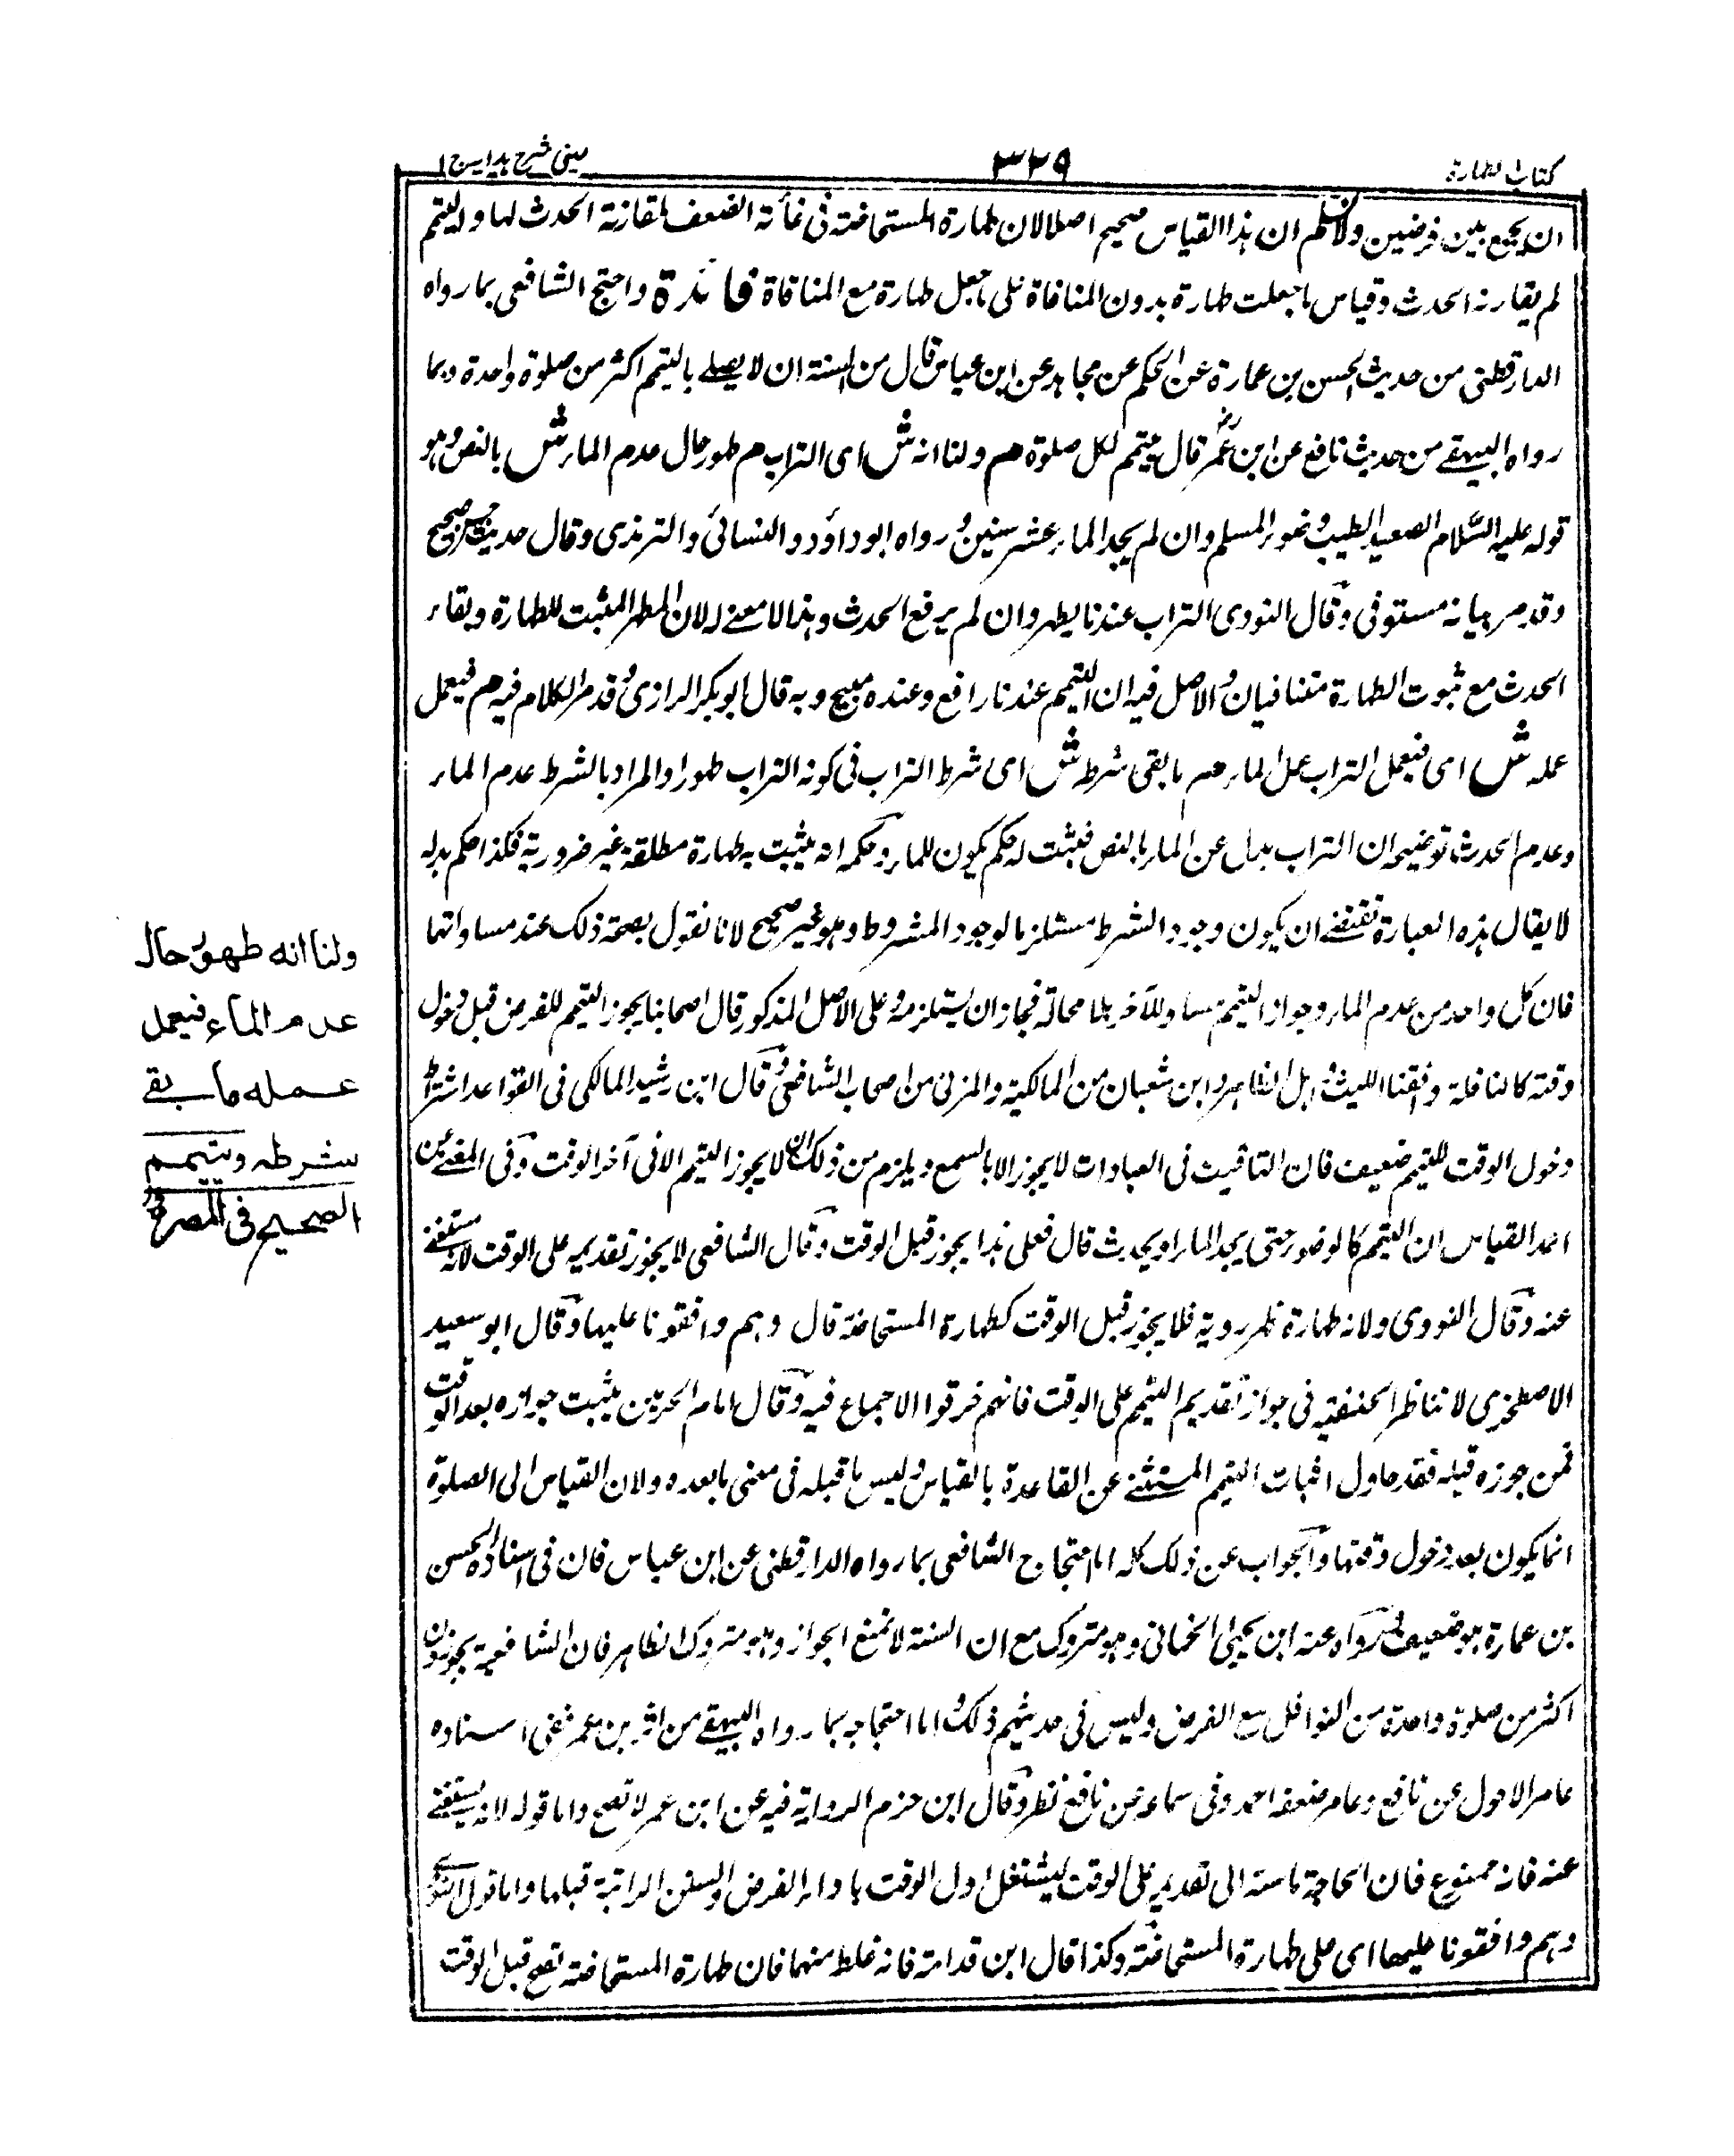 كتاب الطهارة
٣٢٩
عينى شرح هدايه ج ١
ان يجمع بين فرضين ولا نسلم ان هذا القياس صحيح اصلا لان طهارة المستحاضة فى غاية الضعف لمقارنة الحدث لها والتيمم
لم يقارنه الحدث وقياس ما جعلت طهارة بدون المنافاة على ما جعل طهارة مع المنافاة فائدة واحتج الشافعى بما رواه
الدارقطنى من حديث الحسن بن عمارة عن الحكم عن مجاهد عن ابن عباس قال من السنة ان لا يصلے بالتيمم اكثر من صلوة واحدة وبما
رواه البيهقے من حديث نافع عن ابن عمر قال يتيمم لكل صلوة م ولنا انه ش اى التراب م طهور حال عدم الماء ش بالنص وهو
قوله عليه السلام الصعيد الطيب وضوء المسلم وان لم يجد الماء عشر سنين رواه ابو داؤد والنسائى والترمذى وقال حديث حسن صحيح
وقد مر بيانه مستوفى وقال النووى التراب عندنا يطهر وان لم يرفع الحدث وهذا لا معنے له لان المطهر المثبت للطهارة وبقاء
الحدث مع ثبوت الطهارة متنافيان والاصل فيه ان التيمم عندنا رافع وعنده مبيح وبه قال ابو بكر الرازى وقد مر الكلام فيه م فيعمل
عمله ش اى فيعمل التراب عمل الماء م ما بقى شرطه ش اى شرط التراب فى كونه التراب طهورا والمراد بالشرط عدم الماء
وعدم الحدث توضيحه ان التراب بدل عن الماء بالنص فيثبت له حكم يكون للماء وحكمه انه يثبت به طهارة مطلقة غير ضرورية فكذا حكم بدله
لا يقال هذه العبارة تقتضے ان يكون وجود الشرط مستلزما لوجود المشروط وهو غير صحيح لانا نقول بصحة ذلك عند مساواتها
فان كل واحد من عدم الماء وجواز التيمم مساو للآخر بلا محالة فجاز ان يستلزمه وعلى الاصل المذكور قال اصحابنا يجوز التيمم للفرض قبل دخول
وقته كالنافلة وافقنا الليث واهل الظاهر وابن شعبان من المالكية والمزنى من اصحاب الشافعى وقال ابن رشيد المالكى فى القواعد اشتراط
دخول الوقت للتيمم ضعيف فان التاقيت فى العبادات لا يجوز الا بالسمع ويلزم من ذلك ان لا يجوز التيمم الا فى آخر الوقت وفى المغنے عن
احمد القياس ان التيمم كالوضوء حتى يجد الماء او يحدث قال فعلى هذا يجوز قبل الوقت وقال الشافعى لا يجوز تقديمه على الوقت لانه مستغنے
عنه وقال النووى ولانه طهارة ضرورية فلا يجوز قبل الوقت كطهارة المستحاضة قال وهم وافقونا عليها وقال ابو سعيد
الاصطخرى لا نناظر الحنفية فى جواز تقديم التيمم على الوقت فانهم خرقوا الاجماع فيه وقال امام الحرمين يثبت جوازه بعد الوقت
فمن جوزه قبله فقد حاول اثبات التيمم المستثنے عن القاعدة بالقياس وليس ما قبله فى معنى ما بعده ولان القياس الى الصلوة
انما يكون بعد دخول وقتها والجواب عن ذلك كله اما احتجاج الشافعى بما رواه الدارقطنى عن ابن عباس فان فى اسناده الحسن
بن عمارة هو ضعيف رواه عنه ابن يحيى الحمانى وهو متروك مع ان السنة لا تمنع الجواز وهو متروك الظاهر فان الشافعية يجوزون
اكثر من صلوة واحدة من النوافل مع الفرض وليس فى حديثهم ذلك واما احتجاجه بما رواه البيهقے من اثر بن عمر ففى اسناده
عامر الاحول عن نافع وعامر ضعفه احمد وفى سماعه عن نافع نظر وقال ابن حزم الرواية فيه عن ابن عمر لا تصح واما قوله لانه يستغنے
عنه فانه ممنوع فان الحاجة ماسة الى تقديمه على الوقت ليشتغل اول الوقت باداء الفرض او السنن الراتبة قبلها واما قول النووى
وهم وافقونا عليها اى على طهارة المستحاضة وكذا قال ابن قدامة فانه غلط منهما فان طهارة المستحاضة تصح قبل الوقت
ولنا انه طهور حال
عدم الماء فيعمل
عمله ما بقے
شرطه ويتيمم
الصحيح فى المصر